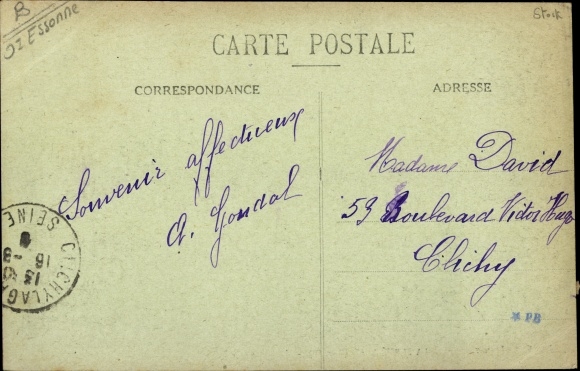 B
OI Essonne
Stock
CARTE POSTALE
CORRESPONDANCE
ADRESSE
Souvenir affectueux
A. Gondal
Madame David
59 Boulevard Victor Hugo
Clichy
CLICHY LA G
13 30
16 - 8
SEINE
* PB